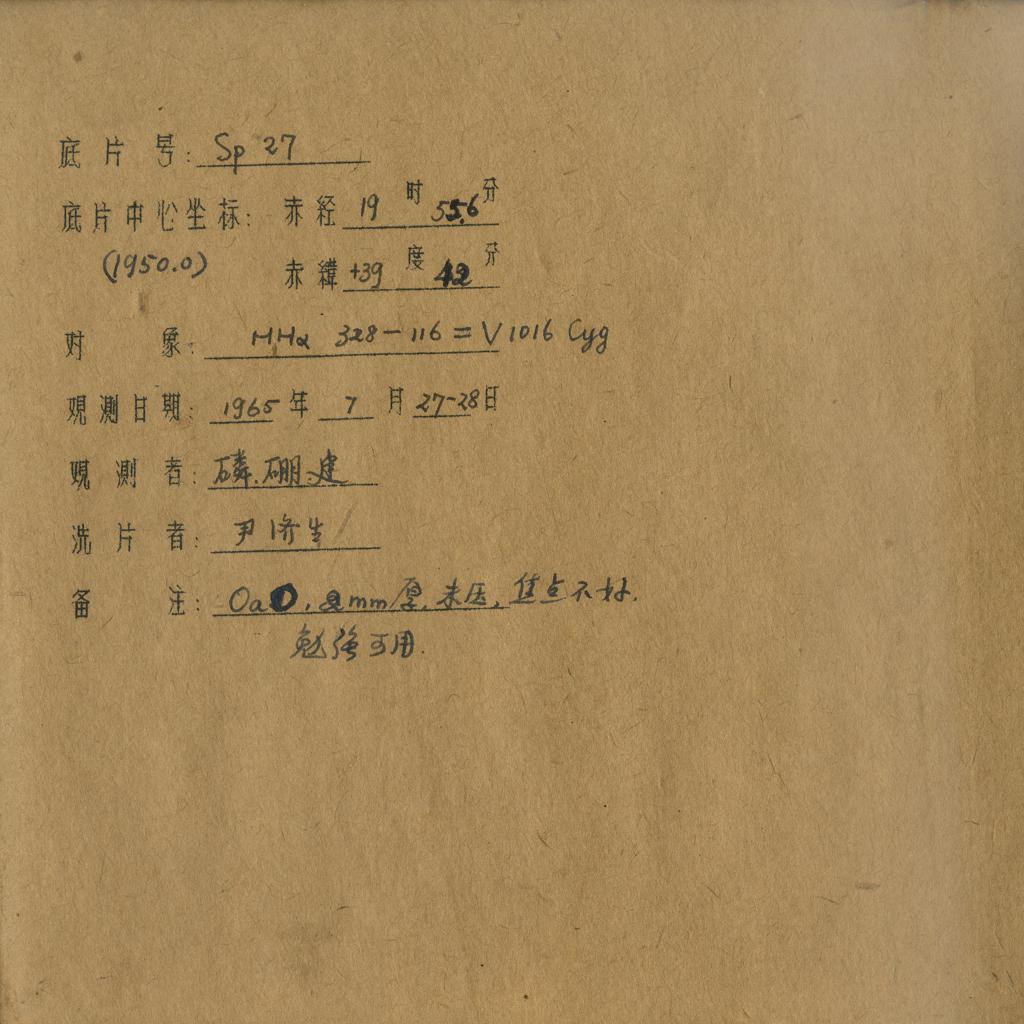 底片号: Sp 27
底片中心坐标: 赤经 19 时 55.6 分
(1950.0) 赤纬 +39 度 42 分
对象: MHα 328-116 = V1016 Cyg
观测日期: 1965 年 7 月 27-28 日
观测者: 磷.硼.建
洗片者: 尹济生
备注: OaO, 2mm厚, 未压, 焦点不好.
勉强可用.